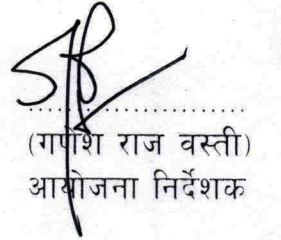 ....................
(गणेश राज वस्ती)
आयोजना निर्देशक